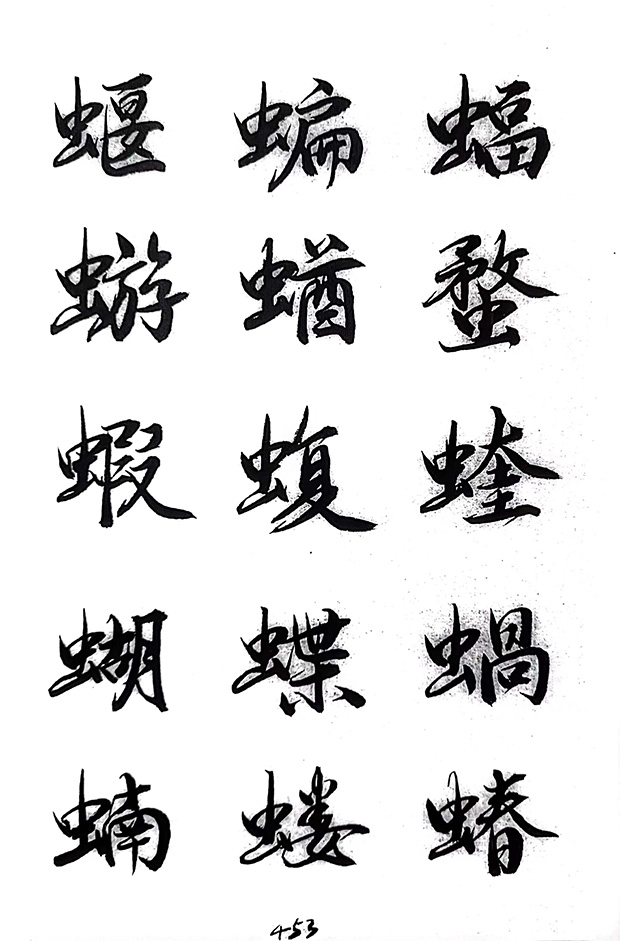 蝘 蝙 蝠
蝣 蝤 蝥
蝦 蝮 蝰
蝴 蝶 蝸
蝻 蝼 蝽
453